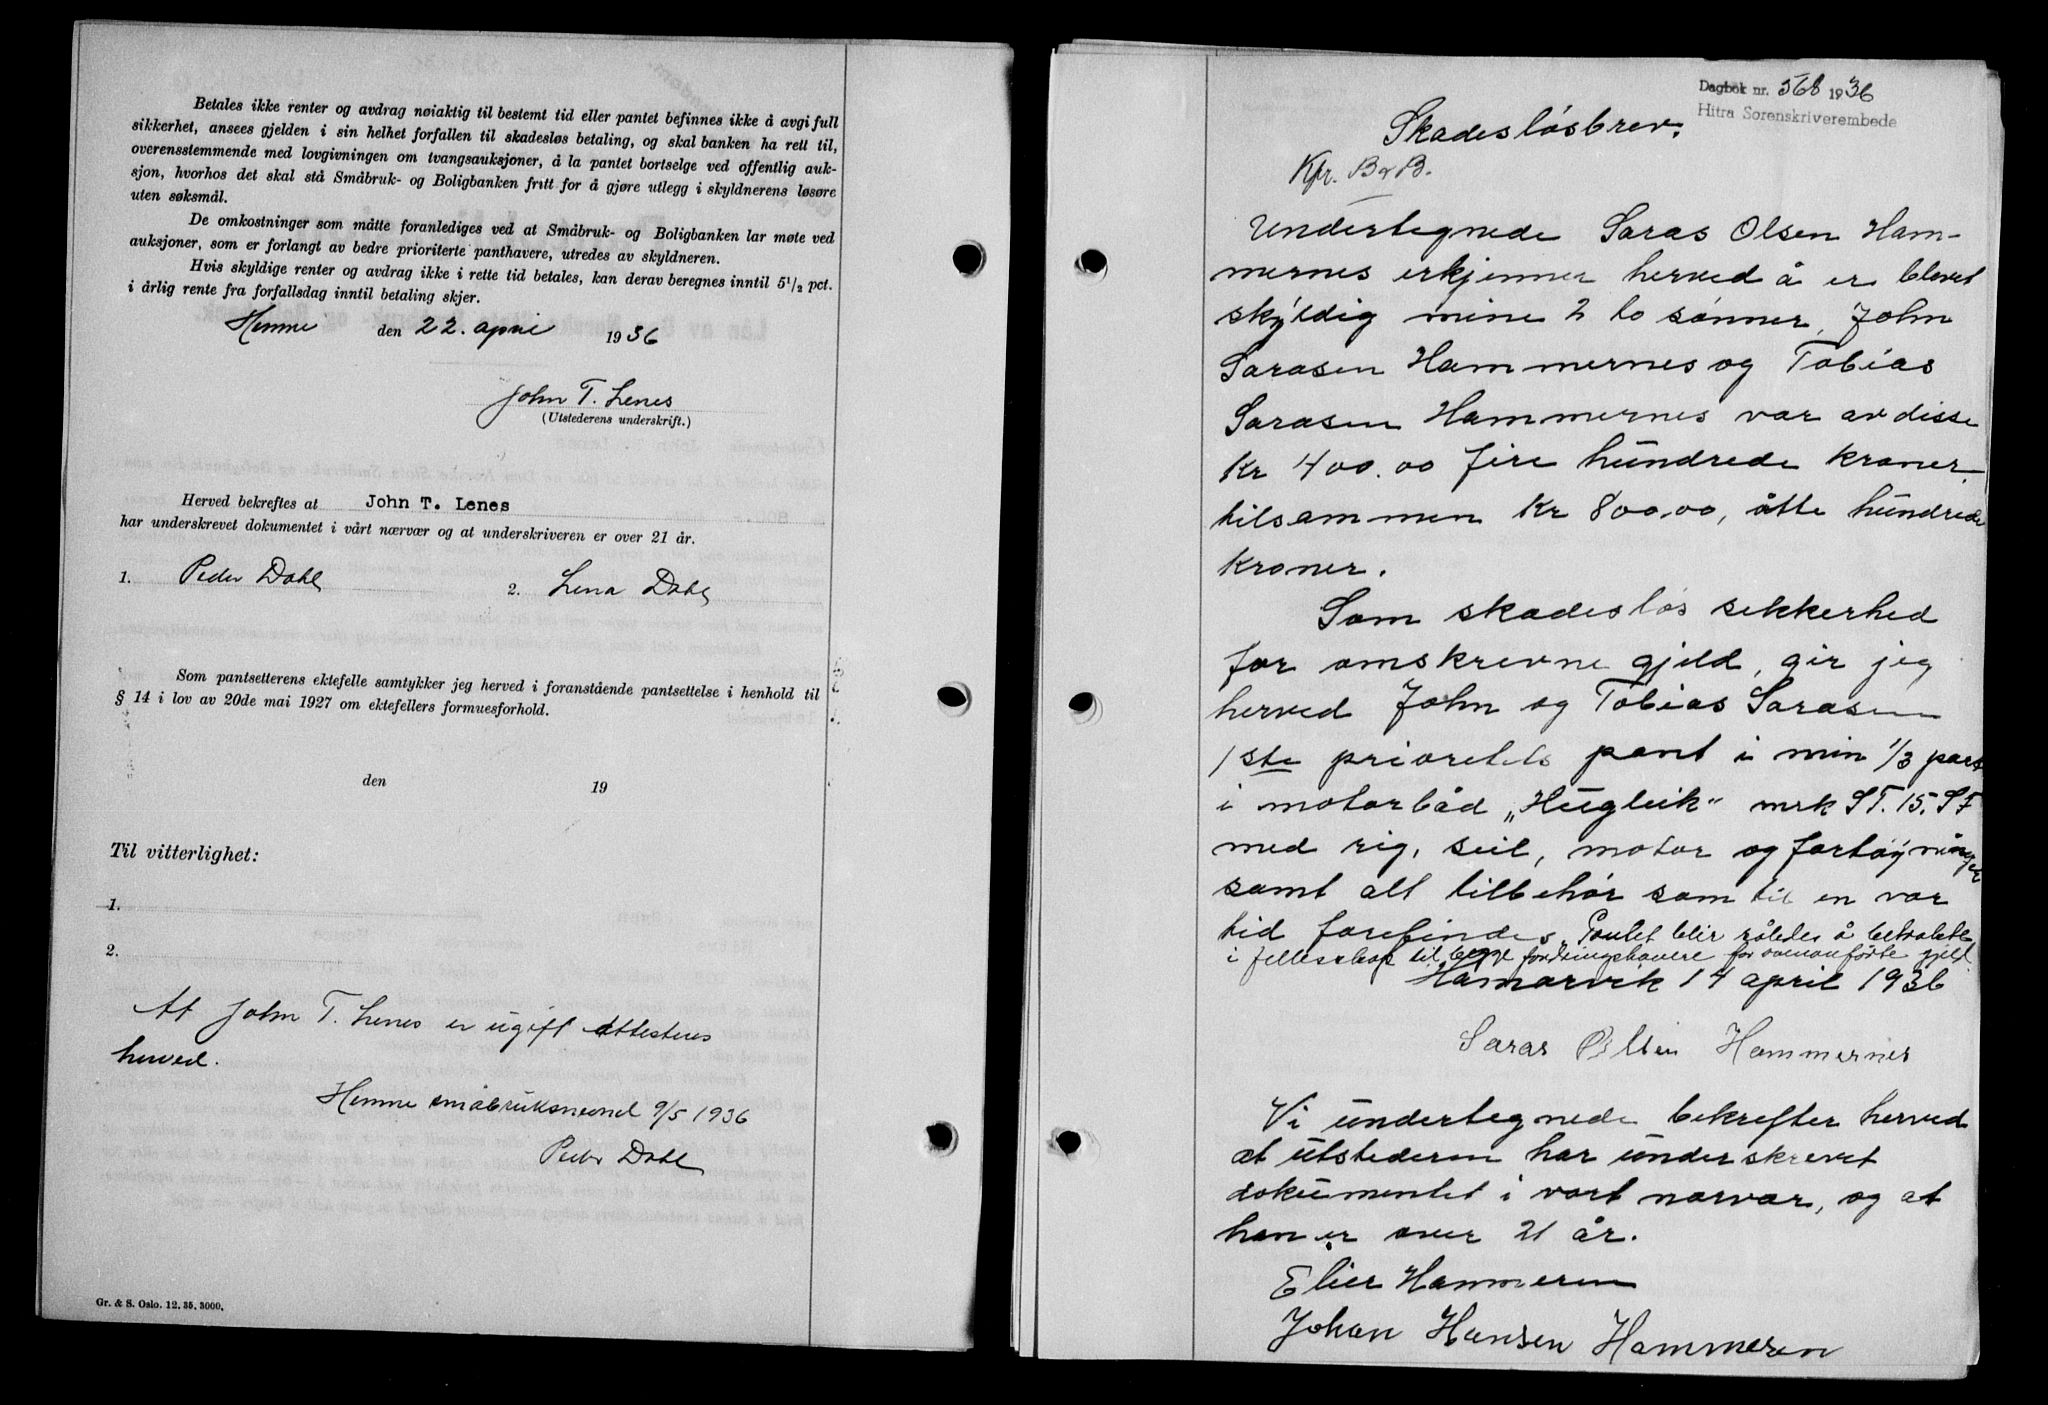 Betales ikke renter og avdrag nøiaktig til bestemt tid eller pantet befinnes ikke å avgi full
sikkerhet, ansees gjelden i sin helhet forfallen til skadesløs betaling, og skal banken ha rett til,
overensstemmende med lovgivningen om tvangsauksjoner, å la pantet bortselge ved offentlig auk-
sjon, hvorhos det skal stå Småbruk- og Boligbanken fritt for å gjøre utlegg i skyldnerens løsøre
uten søksmål.
De omkostninger som måtte foranlediges ved at Småbruk- og Boligbanken lar møte ved
auksjoner, som er forlangt av bedre prioriterte panthavere, utredes av skyldneren.
Hvis skyldige renter og avdrag ikke i rette tid betales, kan derav beregnes inntil 5 1/2 pct.
i årlig rente fra forfallsdag inntil betaling skjer.
Hemne den 22. april 1936
John T. Lenes
(Utstederens underskrift.)
Herved bekreftes at John T. Lenes
har underskrevet dokumentet i vårt nærvær og at underskriveren er over 21 år.
1. Peder Dahl 2. Lena Dahl
Som pantsetterens ektefelle samtykker jeg herved i foranstående pantsettelse i henhold til
§ 14 i lov av 20de mai 1927 om ektefellers formuesforhold.
den 19
Til vitterlighet:
1.
2.
At John T. Lenes er ugift attesteres
herved.
Hemne småbruksnevnd 9/5 1936
Peder Dahl
Gr. & S. Oslo. 12. 35. 3000.
Dagbok nr. 568 1936
Hitra Sorenskriverembede
Skadesløsbrev.
Kpr. B & B.
Undertegnede Saras Olsen Ham-
mernes erkjenner herved å er blevet
skyldig mine 2 to sønner, John
Sarasen Hammernes og Tobias
Sarasen Hammernes var av disse
Kr 400.00 fire hundrede kroner,
tilsammen Kr 800.00, åtte hundrede
kroner.
Som skadesløs sikkerhed
for omskrevne gjeld, gir jeg
herved John og Tobias Sarasen
1ste prioretets pant i min 1/3 part
i motorbåd „Hugleik" mrk ST. 15. SF
med rig, seil, motor og fortøyninger
samt alt tilbehør som til en var
tid forefindes. Pantet blir således å betrakte
i fellesskap til begge fordringshavere for ovenanførte gjeld.
Hamarvik 14 april 1936
Saras Olsen Hammernes
Vi undertegnede bekrefter herved
at utstederen har underskrevet
dokumentet i vort nærvær, og at
han er over 21 år.
Elier Hammeren
Johan Hansen Hammeren